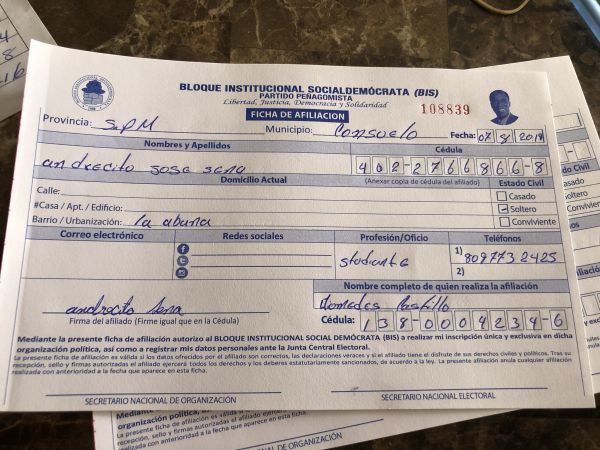 BLOQUE INSTITUCIONAL SOCIALDEMÓCRATA (BIS)
PARTIDO PEÑAGOMISTA
Libertad, Justicia, Democracia y Solidaridad
108839
FICHA DE AFILIACION
Provincia: S.P.M Municipio: Consuelo Fecha: 07/8/201
Nombres y Apellidos Cédula
andrecito jose sena 402-2766866-8
Domicilio Actual (Anexar copia de cédula del afiliado) Estado Civil
Calle: Casado
#Casa / Apt. / Edificio: Soltero
Barrio / Urbanización: la Conviviente
Correo electrónico Redes sociales Profesión/Oficio Teléfonos
studiante 1) 809 773 2425
2)
Nombre completo de quien realiza la afiliación
andrecito Sena Diomedes Castillo
Firma del afiliado (Firme igual que en la Cédula) Cédula: 138-0004234-6
Mediante la presente ficha de afiliación autorizo al BLOQUE INSTITUCIONAL SOCIAL DEMÓCRATA (BIS) a realizar mi inscripción única y exclusiva en dicha
organización política, así como a registrar mis datos personales ante la Junta Central Electoral.
La presente ficha de afiliación es válida si los datos ofrecidos por el afiliado son correctos, las declaraciones veraces y si el afiliado tiene el disfrute de sus derechos civiles y políticos. Tras su
recepción, sello y firmas autorizadas el afiliado ejercerá todos los derechos y los deberes estatutariamente sancionados, de acuerdo a la ley. La presente afiliación anula cualquier afiliación
realizada con anterioridad a la fecha que aparece en esta ficha.
SECRETARIO NACIONAL DE ORGANIZACIÓN SECRETARIO NACIONAL ELECTORAL